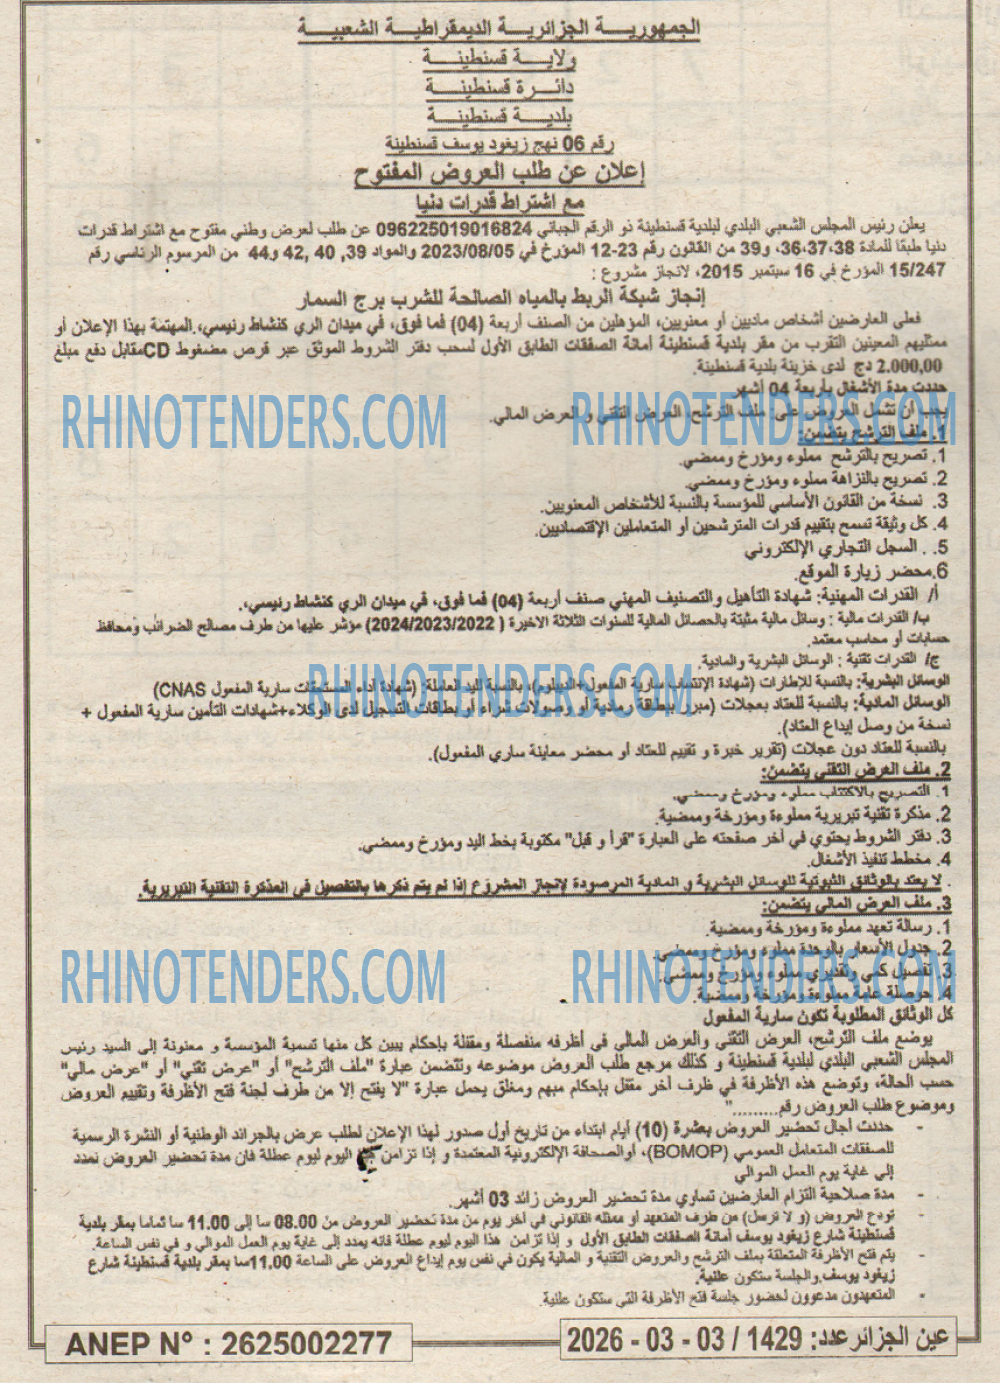 الجمهوريـــة الجزائريـــة الديمقراطيـــة الشعبيـــة
ولايـــة قسنطينـــة
دائـــرة قسنطينـــة
بلديـــة قسنطينـــة
رقم 06 نهج زيغود يوسف قسنطينة
إعلان عن طلب العروض المفتوح
مع اشتراط قدرات دنيا
يعلن رئيس المجلس الشعبي البلدي لبلدية قسنطينة ذو الرقم الجبائي 096225019016824 عن طلب لعرض وطني مفتوح مع اشتراط قدرات
دنيا طبقا للمادة 38،37،36، و39 من القانون رقم 23-12 المؤرخ في 2023/08/05 والمواد 39, 40, 42 و44 من المرسوم الرئاسي رقم
15/247 المؤرخ في 16 سبتمبر 2015، لانجاز مشروع :
إنجاز شبكة الربط بالمياه الصالحة للشرب برج السمار
فعلى العارضين أشخاص ماديين أو معنويين، المؤهلين من الصنف أربعة (04) فما فوق، في ميدان الري كنشاط رئيسي، المهتمة بهذا الإعلان أو
ممثليهم المعينين التقرب من مقر بلدية قسنطينة أمانة الصفقات الطابق الأول لسحب دفتر الشروط الموثق عبر قرص مضغوط CDمقابل دفع مبلغ
2.000,00 دج لدى خزينة بلدية قسنطينة.
حددت مدة الأشغال بأربعة 04 أشهر
يجب أن تشمل العروض على: ملف الترشح، العرض التقني و العرض المالي.
RHINOTENDERS.COM RHINOTENDERS.COM
1. ملف الترشح يتضمن:
1. تصريح بالترشح مملوء ومؤرخ وممضي.
2. تصريح بالنزاهة مملوء ومؤرخ وممضي.
3. نسخة من القانون الأساسي للمؤسسة بالنسبة للأشخاص المعنويين.
4. كل وثيقة تسمح بتقييم قدرات المترشحين أو المتعاملين الإقتصاديين.
5. . السجل التجاري الإلكتروني
6.محضر زيارة الموقع.
أ/ القدرات المهنية: شهادة التأهيل والتصنيف المهني صنف أربعة (04) فما فوق، في ميدان الري كنشاط رئيسي،.
ب/ القدرات مالية : وسائل مالية مثبتة بالحصائل المالية للسنوات الثلاثة الاخيرة ( 2024/2023/2022) مؤشر عليها من طرف مصالح الضرائب ومحافظ
حسابات أو محاسب معتمد.
ج/ القدرات تقنية : الوسائل البشرية والمادية.
RHINOTENDERS.COM
الوسائل البشرية: بالنسبة للإطارات (شهادة الإنتساب سارية المفعول+الديبلوم)، بالنسبة لليد العاملة: (شهادة أداء المستحقات سارية المفعول CNAS)
الوسائل المادية: بالنسبة للعتاد بعجلات (مبرر ببطاقة رمادية أو وصولات شراء أو بطاقات التسجيل لدى الوكلاء+شهادات التأمين سارية المفعول +
نسخة من وصل إيداع العتاد).
بالنسبة للعتاد دون عجلات (تقرير خبرة و تقييم للعتاد أو محضر معاينة ساري المفعول).
2. ملف العرض التقني يتضمن:
1. التصريح بالاكتتاب مملوء ومؤرخ وممضي.
2. مذكرة تقنية تبريرية مملوءة ومؤرخة وممضية.
3. دفتر الشروط يحتوي في آخر صفحته على العبارة "قرأ و قبل" مكتوبة بخط اليد ومؤرخ وممضي.
4. مخطط تنفيذ الأشغال.
. لا يعتد بالوثائق الثبوتية للوسائل البشرية و المادية المرصودة لإنجاز المشروع إذا لم يتم ذكرها بالتفصيل في المذكرة التقنية التبريرية.
3. ملف العرض المالي يتضمن:
1. رسالة تعهد مملوءة ومؤرخة وممضية.
2. جدول الأسعار بالوحدة مملوء ومؤرخ وممضي.
3. تفصيل كمي وتقديري مملوء ومؤرخ وممضي.
4. حوصلة عامة مملوءة ومؤرخة وممضية.
RHINOTENDERS.COM RHINOTENDERS.COM
كل الوثائق المطلوبة تكون سارية المفعول
يوضع ملف الترشح، العرض التقني والعرض المالي في أظرفه منفصلة ومقفلة بإحكام يبين كل منها تسمية المؤسسة و معنونة إلى السيد رئيس
المجلس الشعبي البلدي لبلدية قسنطينة و كذلك مرجع طلب العروض موضوعه وتتضمن عبارة "ملف الترشح" أو "عرض تقني" أو "عرض مالي"
حسب الحالة، وتوضع هذه الأظرفة في ظرف آخر مقفل بإحكام مبهم ومغلق يحمل عبارة "لا يفتح إلا من طرف لجنة فتح الأظرفة وتقييم العروض
وموضوع طلب العروض رقم.........."
- حددت آجال تحضير العروض بعشرة (10) أيام ابتداء من تاريخ أول صدور لهذا الإعلان لطلب عرض بالجرائد الوطنية أو النشرة الرسمية
للصفقات المتعامل العمومي (BOMOP)، أوالصحافة الإلكترونية المعتمدة و إذا تزامن اليوم ليوم عطلة فان مدة تحضير العروض تمدد
إلى غاية يوم العمل الموالي
- مدة صلاحية التزام العارضين تساوي مدة تحضير العروض زائد 03 أشهر.
- تودع العروض (و لا ترسل) من طرف المتعهد أو ممثله القانوني في آخر يوم من مدة تحضير العروض من 08.00 سا إلى 11.00 سا تماما بمقر بلدية
قسنطينة شارع زيغود يوسف أمانة الصفقات الطابق الأول و إذا تزامن هذا اليوم ليوم عطلة فانه يمدد إلى غاية يوم العمل الموالي و في نفس الساعة.
- يتم فتح الأظرفة المتعلقة بملف الترشح والعروض التقنية و المالية يكون في نفس يوم إيداع العروض على الساعة 11.00سا بمقر بلدية قسنطينة شارع
زيغود يوسف.والجلسة ستكون علنية.
- المتعهدون مدعوون لحضور جلسة فتح الأظرفة التي ستكون علنية.
عين الجزائر عدد: 1429 / 03 - 03 - 2026
ANEP N° : 2625002277